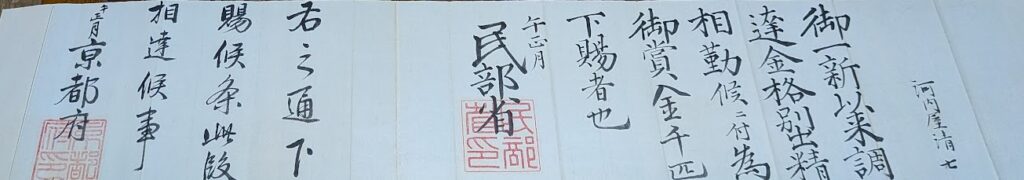 河内屋清七
御一新以来調
達金格別出精
相勤候ニ付為
御賞金千匹
下賜者也
午正月
民部省
民部省印
右之通下
賜候条此段
相達候事
午三月
京都府
京都府印